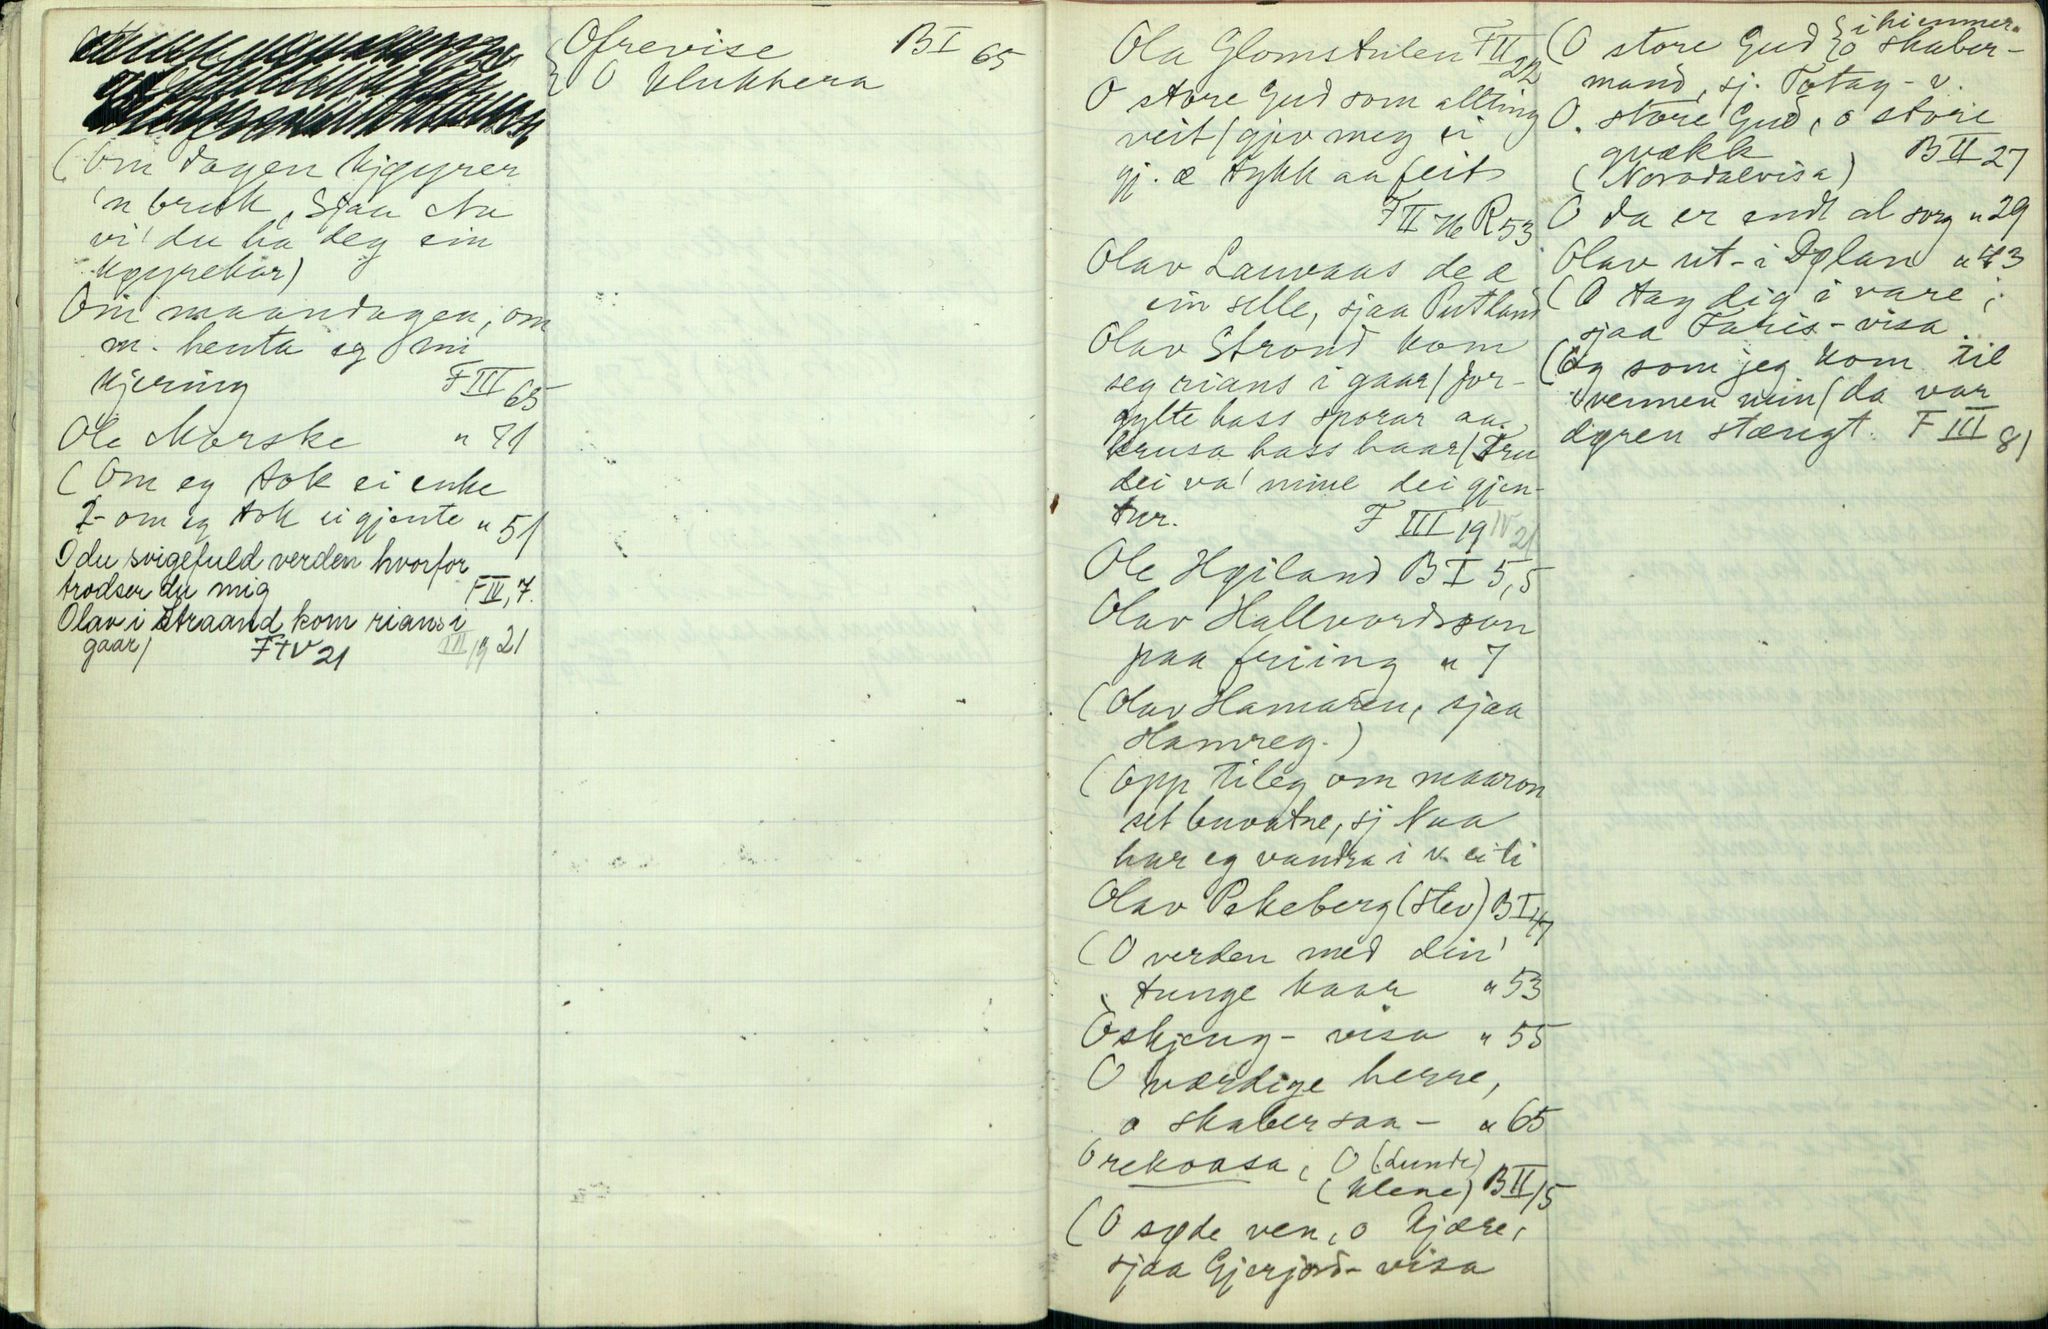 (Om dagen kjøyrer
'n brusk, sjaa Nu
vi' du ha deg ein
kjøyrekar)
Om maandagen, om
m. henta eg mi
kjering FIII 65
Ole Morske " 71
(Om eg tok ei enke
2- om eg tok ei gjente " 51
O du svigefuld verden hvorfor
trodser du mig FIV, 7.
Olav i Straand kom rians i
gaar/ FIV 21 III 19 21
Ofrevise BI 65
O klukkera
Ola Glomstulen FII 22
O store Gud som allting
veit/gjev meg ei
gj. æ tykk aa feit
FII 76 R 53
Olav Lauvaas de æ
ein selle, sjaa Rutland
Olav Strond kom
seg rians i gaar/for-
gylte hass sporar aa
krusa hass haar/Tru
dei va' mine dei gjen-
tur. F III 19 IV 21
Ole Høiland B I 5,5
Olav Hallvordsson
paa friing " 7
(Olav Hamaren, sjaa
Hamreg.)
(Opp tileg om maaron
set buvatne, sj Naa
har eg vandra i v. ei ti
Olav Pekeberg (stev) BI 47
(O verden med din'
tunge kaar " 53
Òskjeng- visa " 55
O værdige herre,
o skaber saa- " 65
Orekoasa, O (lunde)
(klene) BII 15
(O søde ven, o kjære,
sjaa Gjerjord- visa
(O store Gud { i himmer.
o skaber-
mand, sj. Totag- v.
O. store Gud, o store
gvækk BII 27
(Norodalvisa)
O da er endt al sorg " 29
Olav ut- i Dølan " 43
(O tag dig i vare,
sjaa Faris- visa
(Og som jeg kom til
vennen min/da var
døren stængt. F III 81